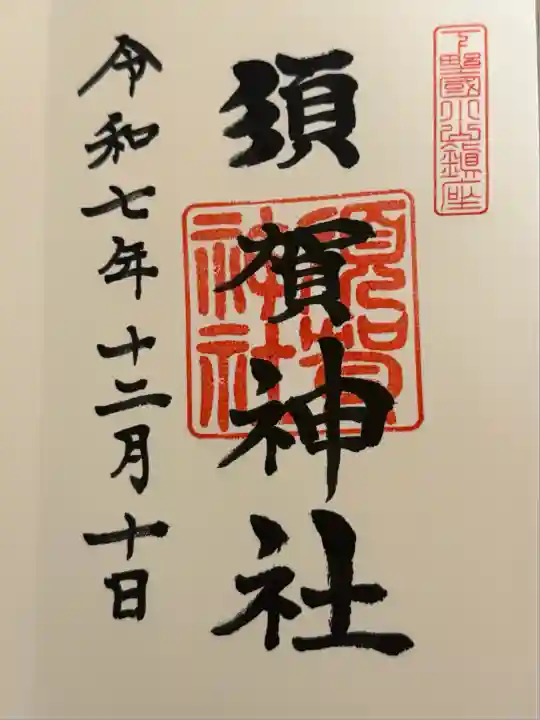 下野國小山鎮座
須賀神社
須賀神社
令和七年十二月十日